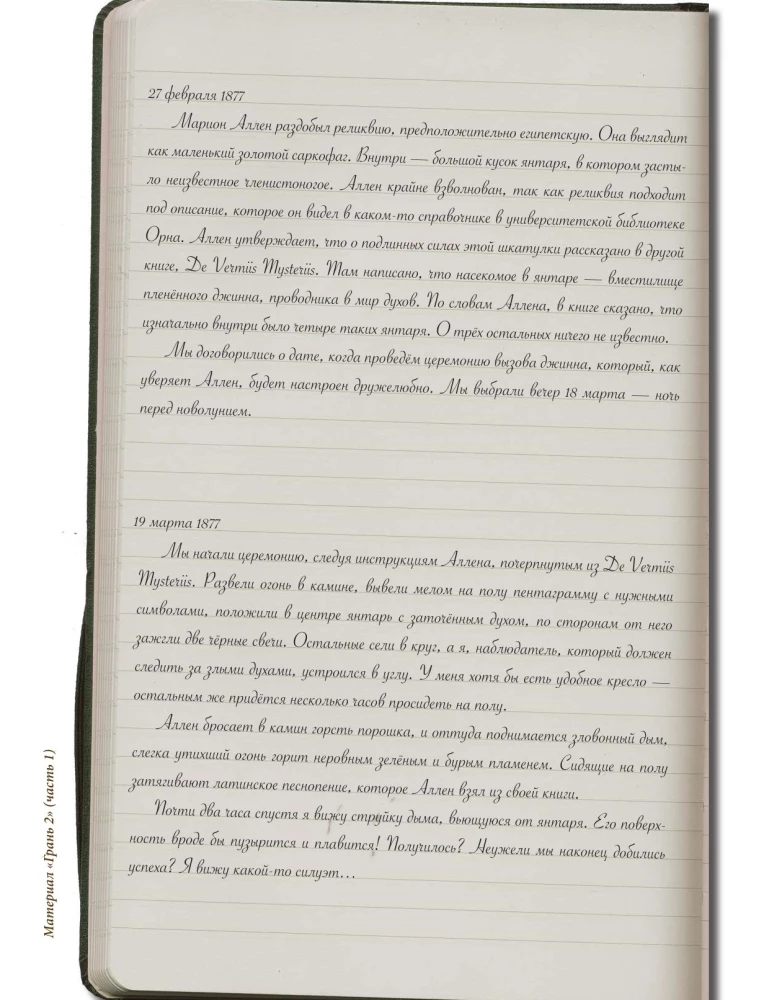 27 февраля 1877
Марион Аллен раздобыл реликвию, предположительно египетскую. Она выглядит
как маленький золотой саркофаг. Внутри — большой кусок янтаря, в котором засты-
ло неизвестное членистоногое. Аллен крайне взволнован, так как реликвия подходит
под описание, которое он видел в каком-то справочнике в университетской библиотеке
Орна. Аллен утверждает, что о подлинных силах этой шкатулки рассказано в другой
книге, De Vermiis Mysteriis. Там написано, что насекомое в янтаре — вместилище
пленённого джинна, проводника в мир духов. По словам Аллена, в книге сказано, что
изначально внутри было четыре таких янтаря. О трёх остальных ничего не известно.
Мы договорились о дате, когда проведём церемонию вызова джинна, который, как
уверяет Аллен, будет настроен дружелюбно. Мы выбрали вечер 18 марта — ночь
перед новолунием.
19 марта 1877
Мы начали церемонию, следуя инструкциям Аллена, почерпнутым из De Vermiis
Mysteriis. Развели огонь в камине, вывели мелом на полу пентаграмму с нужными
символами, положили в центре янтарь с заточённым духом, по сторонам от него
зажгли две чёрные свечи. Остальные сели в круг, а я, наблюдатель, который должен
следить за злыми духами, устроился в углу. У меня хотя бы есть удобное кресло —
остальным же придётся несколько часов просидеть на полу.
Аллен бросает в камин горсть порошка, и оттуда поднимается зловонный дым,
слегка утихший огонь горит неровным зелёным и бурым пламенем. Сидящие на полу
затягивают латинское песнопение, которое Аллен взял из своей книги.
Почти два часа спустя я вижу струйку дыма, вьющуюся от янтаря. Его поверх-
ность вроде бы пузырится и плавится! Получилось? Неужели мы наконец добились
успеха? Я вижу какой-то силуэт...
Материал «Грань 2» (часть 1)